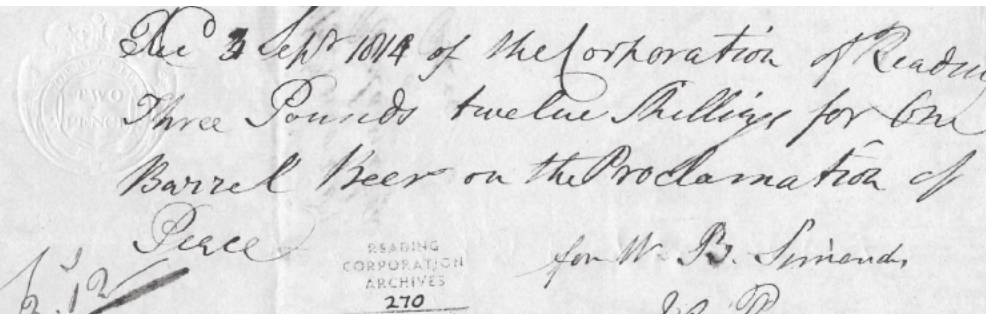 TWO
PENCE
Rec^d 3 Sepr 1814 of the Corporation of Reading
Three Pounds twelve Shillings for One
Barrel Beer on the Proclamation of
Peace
for W. B. Simonds
3.12
READING
CORPORATION
ARCHIVES
270